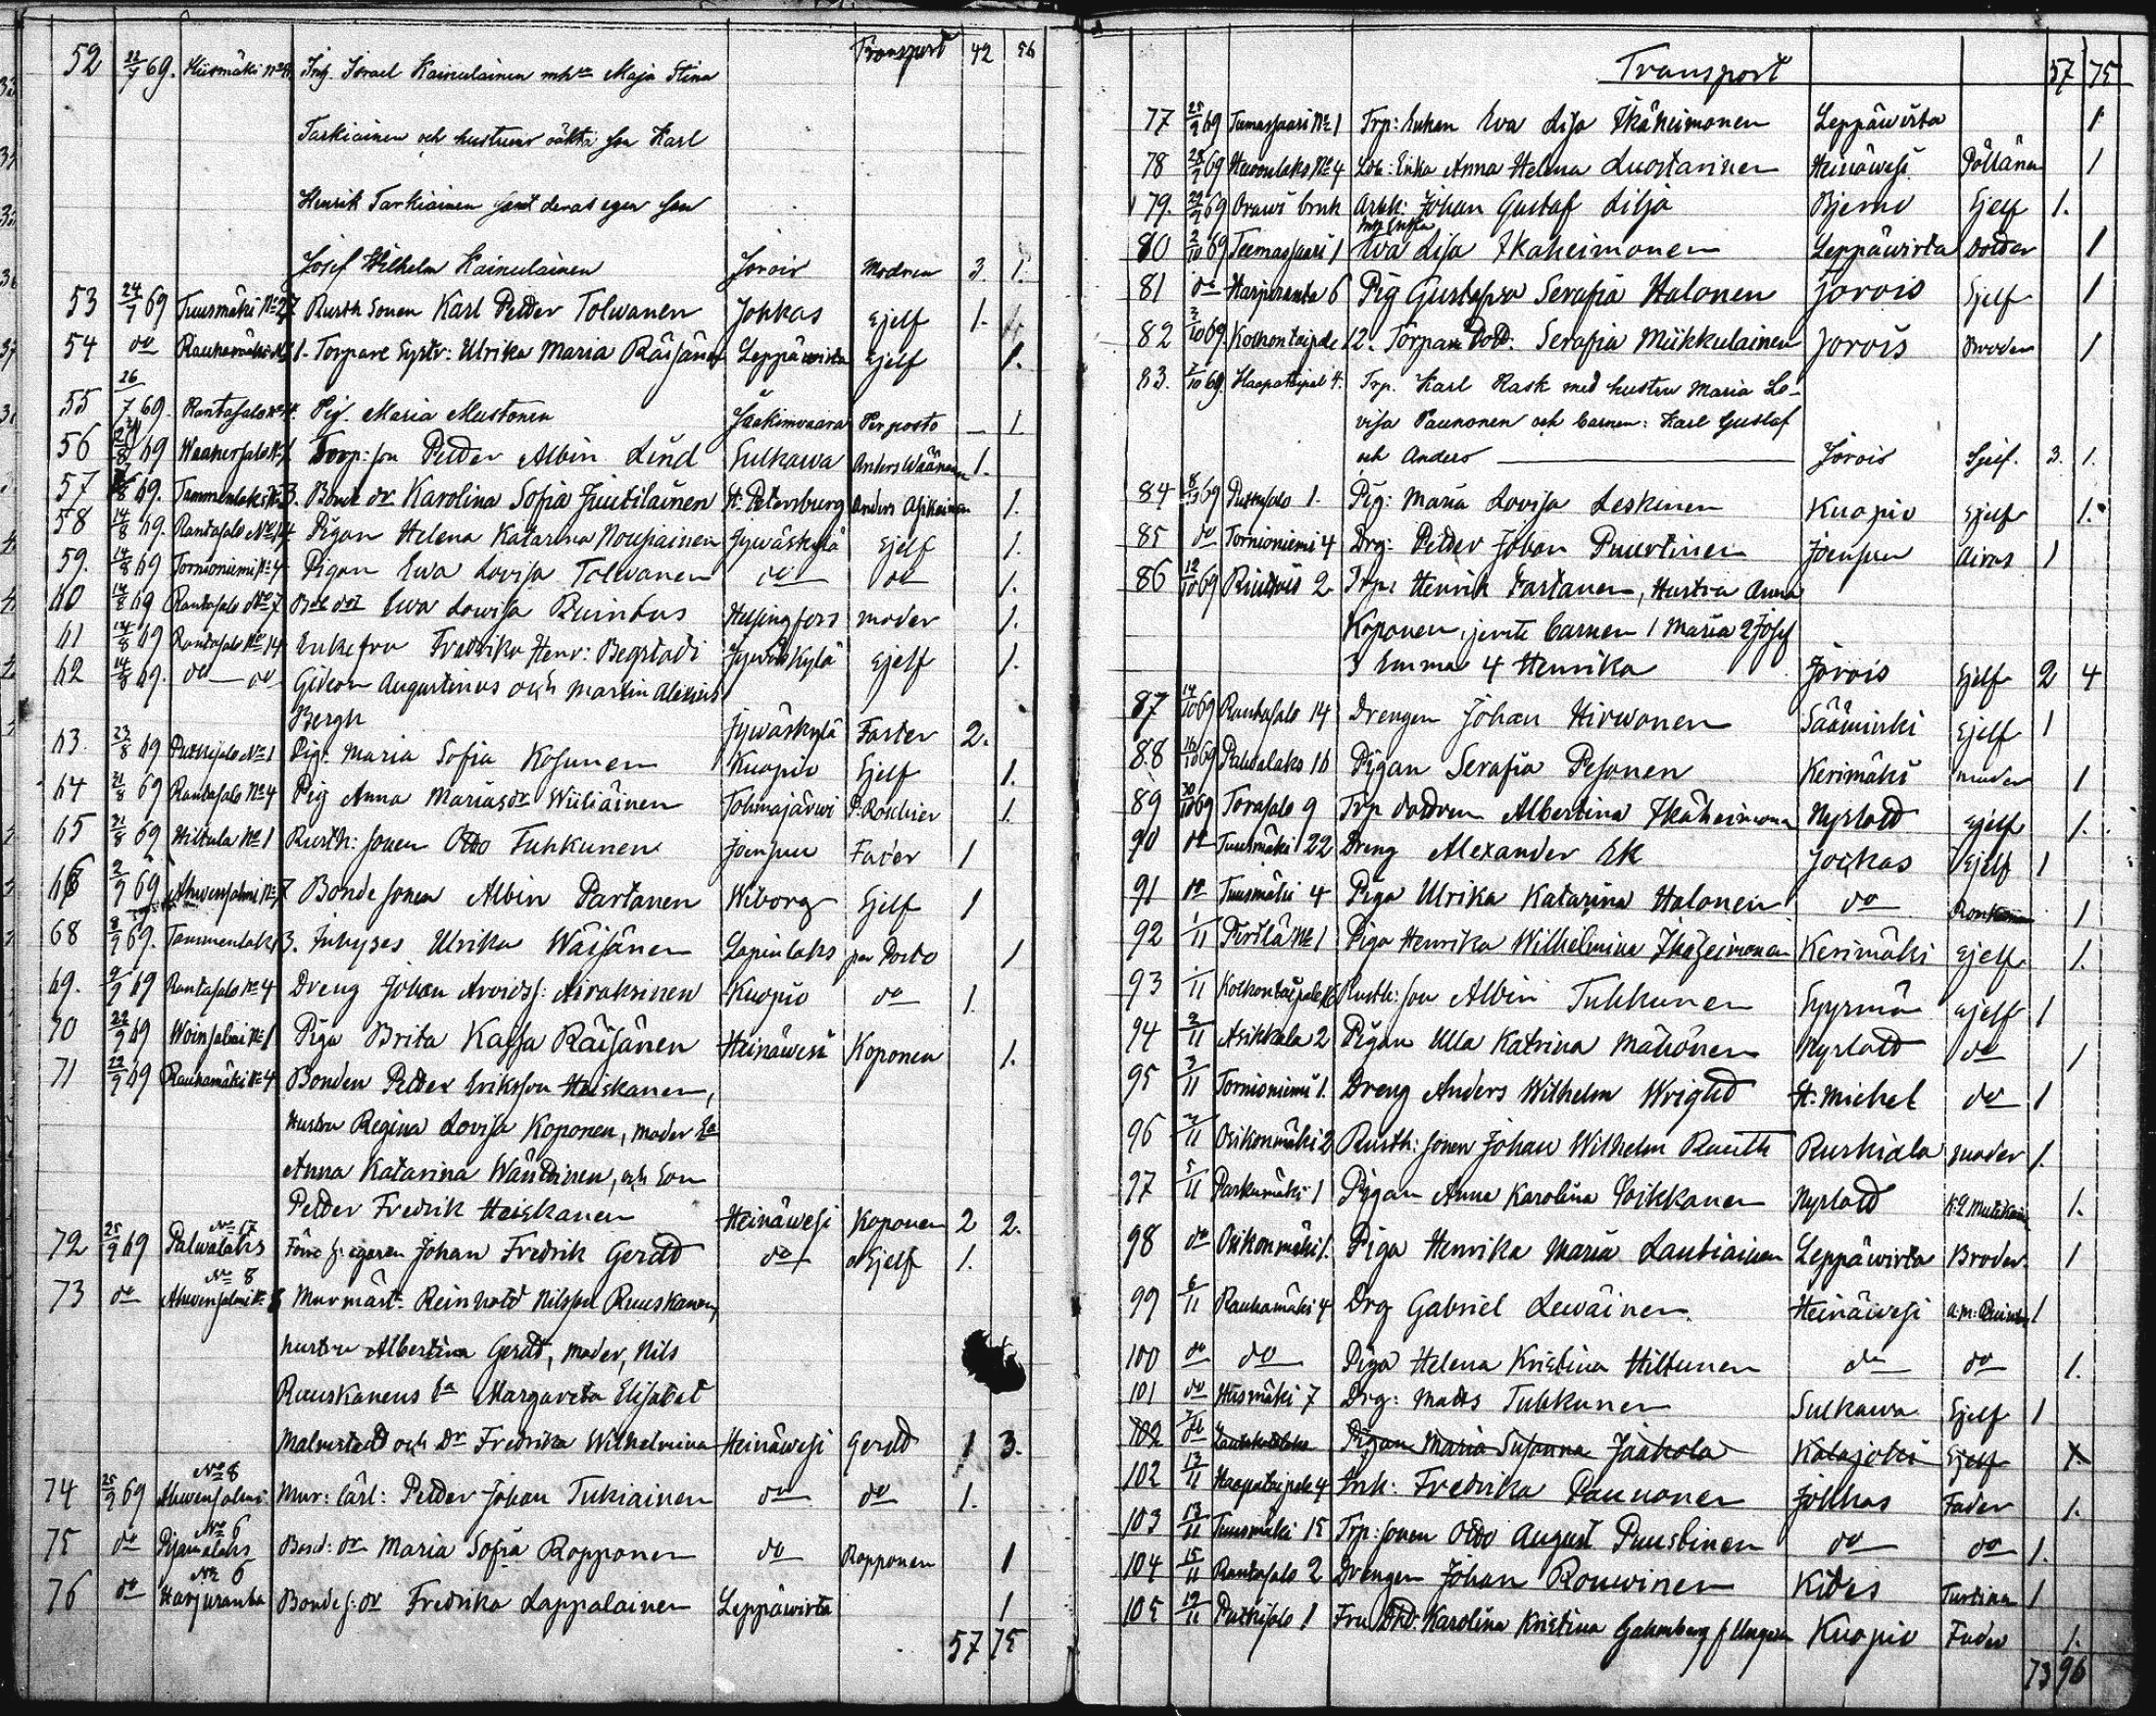 Transport 42 56
52 22/7 69. Kiismäki Inh. Israel Kainulainen Maja Stina
Tarkiainen och hustruns oäkta son Karl
Henrik Tarkiainen samt deras egen son
Josef Wilhelm Kainulainen Jorois Modren 3. 1.
53 24/7 69 Tuusmäki No 27 Rusth Sonen Karl Petter Tolwanen Jokkas Sjelf 1.
54 do Rauhamäki Torpare Ulrika Maria Räisänen Leppäwirta Sjelf 1.
55 26/7 69. Rantasalo No 4. Pig. Maria Mustonen Jaakimvaara Per posto 1.
56 69 Torp: son Petter Albin Lind Sulkawa Anders Wäänänen 1.
57 69. Tammenlaks 3. Bonde dr Karolina Sofia Juutilainen St. Petersburg Anders Asikainen 1.
58 14/8 69. Rantasalo No 14 Pigan Helena Katarina Noupiainen Jywäskylä Sjelf 1.
59. 14/8 69 Tornioniemi No 4 Pigan Ewa Lovisa Tolwanen do do 1.
60 14/8 69 Rantasalo No 7 Ewa Lowisa Helsingfors moder 1.
61 14/8 69 Rantasalo No 14 Enkefru Fredrika Henr: Jywäskylä Sjelf 1.
62 14/8 69. do do Gideon Augustinus och Martin Alexius
Bergh Jywäskylä Faster 2.
63. 23/8 69 Putkisalo No 1 Pig. Maria Sofia Kosunen Kuopio Sjelf 1.
64 31/8 69 Rantasalo No 4 Pig Anna Mariasdr Wiiliäinen Tohmajärwi 1.
65 31/8 69 Hiltula No 1 Rusth: sonen Otto Tuhkunen Joensuu Fader 1
66 2/9 69 Ahwensalmi No 7 Bonde sonen Albin Partanen Wiborg Sjelf 1
68 8/9 69. Tammenlaks 3. Inhyses Ulrika Wäisänen Lapinlaks per Posto 1
69. 9/9 69 Rantasalo No 4 Dreng Johan Arvidss: Airaksinen Kuopio do 1.
70 22/9 69 Woinsalmi No 1 Piga Brita Kajsa Räisänen Heinäwesi Koponen 1.
71 22/9 69 Rauhamäki No 4 Bonden Petter Eriksson Heiskanen,
Hustru Regina Lovisa Koponen, moder Ea
Anna Katarina Wänttinen, och Son
Petter Fredrik Heiskanen Heinäwesi Koponen 2 2.
72 25/9 69 No 17 Palwalaks Johan Fredrik Gerdt do Sjelf 1.
73 do No 8 Ahwensalmi Murmäst. Reinhold Nilsson Ruuskanen,
hustru Albertina Gerdt, moder, Nils
Ruuskanens Ea Margareta Elisabet
Malmstedt och Dr Fredrika Wilhelmina Heinäwesi Gerdt 1 3.
74 25/9 69 No 8 Ahwensalmi Mur: lärl: Petter Johan Tukiainen do do 1.
75 do No 6 Bond: dr Maria Sofia Ropponen do Ropponen 1
76 do No 6 Harjuranta Bondes: dr Fredrika Lappalainen Leppäwirta 1
57 75
Transport 57 75
77 25/9 69 Tumassaari No 1 Trp: Enkan Ewa Lisa Ikäheimonen Leppäwirta 1
78 28/9 69 No 4 Enka Anna Helena Luostarinen Heinäwesi Pöllänen 1
79. 29/9 69 Orawi bruk Arbk: Johan Gustaf Lilja Bjerno Sjelf 1.
80 2/10 69 Enka Ewa Lisa Ikäheimonen Leppäwirta 1
81 do Harjuranta 6 Pig Serafia Halonen Jorois Sjelf 1
82 3/10 69. Kolkontaipale 12. Torpare Dott. Serafia Miikkulainen Jorois Broder 1
83. 7/10 69. Haapataipal 4. Trp. Karl Rask med hustru Maria Lo-
visa Paunonen och barnen: Karl Gustaf
och Anders Jorois Sjelf. 3. 1.
84 8/10 69 Putkisalo 1. Pig: Maria Lovisa Leskinen Kuopio Sjelf 1.
85 do Tornioniemi 4 Drg: Petter Johan Puurtinen Joensuu 1
86 12/10 69 2 Trp: Henrik Partanen, Hustru Anna
Koponen, jemte barnen 1 Maria 2 Josef
3 Emma 4 Henrika Jorois Sjelf 2 4
87 14/10 69 Rantasalo 14 Drengen Johan Hirwonen Sääminki Sjelf 1
88 16/10 69 Palwalaks 16 Pigan Serafia Pesonen Kerimäki moder 1
89 30/10 69 Torasalo 9 Trp dottren Albertina Ikäheimonen Nyslott Sjelf 1.
90 do Tuusmäki 22 Dreng Alexander Ek Jockas Sjelf 1
91 do Tuusmäki 4 Piga Ulrika Katarina Halonen do 1
92 1/11 Pirtilä No 1 Piga Henrika Wilhelmina Ikäheimonen Kerimäki Sjelf 1.
93 1/11 Kolkontaipale 16 Rusth: son Albin Tuhkunen Sjelf 1
94 2/11 Asikkala 2 Pigan Ulla Katrina Mähönen Nyslott do 1
95 3/11 Tornioniemi 1. Dreng Anders Wilhelm Wright St. Michel do 1
96 11 Osikonmäki 2 Rusth: sonen Johan Wilhelm Rauth Ruskiala moder 1.
97 5/11 Parkumäki 1 Pigan Anna Karolina Loikkanen Nyslott 1.
98 do Osikonmäki 1. Piga Henrika Maria Lautiainen Leppäwirta Broder. 1
99 6/11 Rauhamäki 4 Drg Gabriel Lewäinen. Heinäwesi 1
100 do do Piga Helena Kristina Hiltunen do do 1.
101 do 7 Drg: Matts Tuhkunen Sulkawa Sjelf 1
102 Pigan Maria Susanna Jaakola Kalajoki Sjelf 1.
102 13/11 Haapataipale 4 Fredrika Paunonen Jokkas Fader 1.
103 13/11 Tuusmäki 15 Trp: sonen Otto August Puustinen do do 1.
104 15/11 Rantasalo 2 Drengen Johan Rouwinen Kides 1
105 19/11 Putkisalo 1 Fru Karolina Kristina Kuopio Fader 1.
73 96